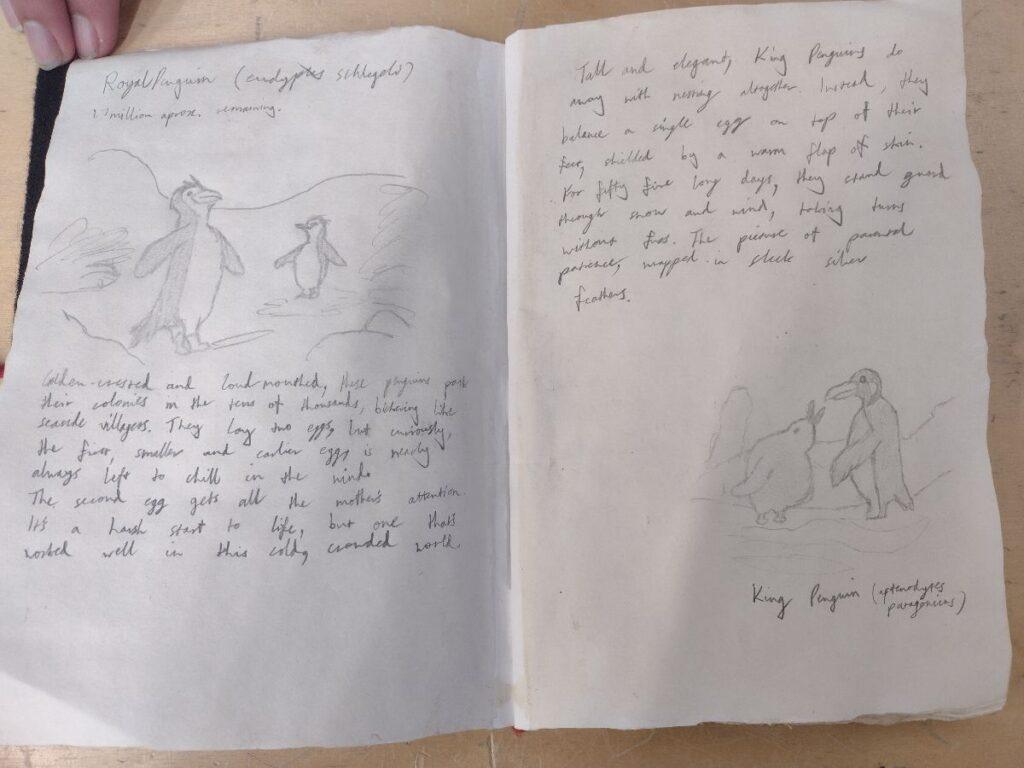 Royal Penguin (eudyptes schlegoli)
1.7 million aprox. remaining.
Golden-crested and loud-mouthed, these penguins pack
their colonies in the tens of thousands, behaving like
seaside villagers. They lay two eggs, but curiously,
the first, smaller and earlier eggs is nearly
always left to chill in the wind.
The second egg gets all the mothers attention.
It's a harsh start to life, but one that's
worked well in this cold, crowded world.
Tall and elegant, King Penguins do
away with nesting altogether. Instead, they
balance a single egg on top of their
feet, shielded by a warm flap of skin.
For fifty five long days, they stand guard
through snow and wind, taking turns
without fuss. The picture of parental
patience, wrapped in sleek silver
feathers.
King Penguin (aptenodytes
patagonicus)